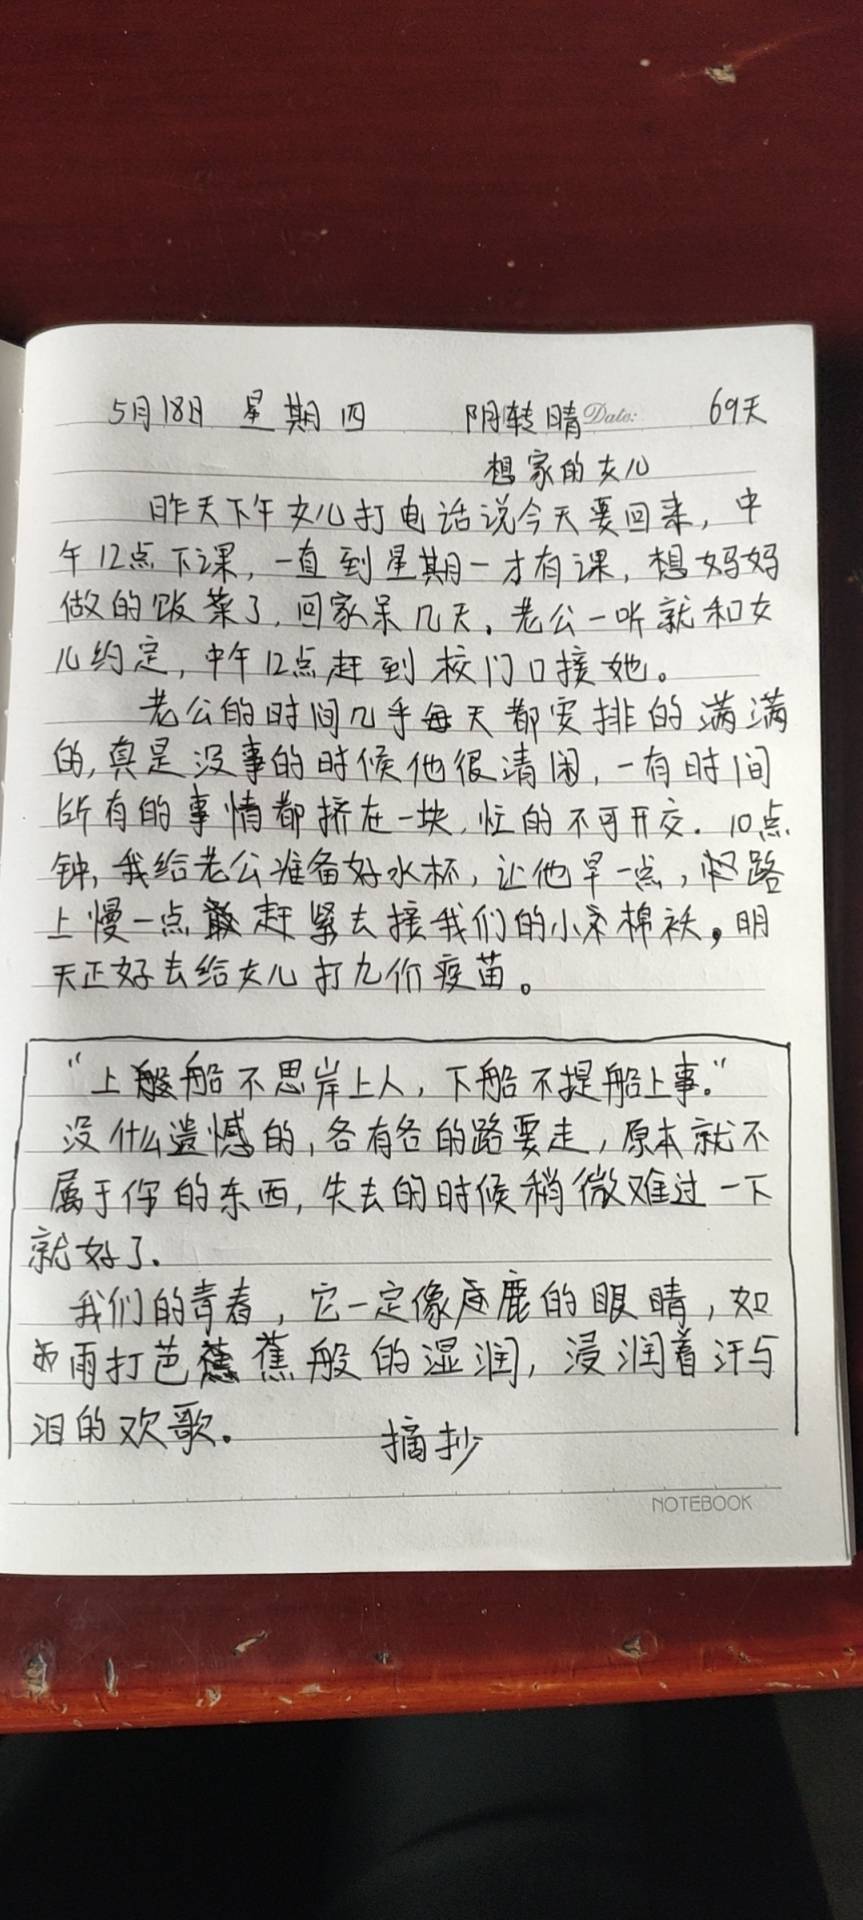 5月18日 星期四 阴转晴 Date: 69天
想家的女儿
昨天下午女儿打电话说今天要回来，中
午12点下课，一直到星期一才有课，想妈妈
做的饭菜了，回家呆几天。老公一听就和女
儿约定，中午12点赶到校门口接她。
老公的时间几乎每天都安排的满满
的，真是没事的时候他很清闲，一有时间
所有的事情都挤在一块，忙的不可开交。10点
钟，我给老公准备好水杯，让他早一点，路
上慢一点赶紧去接我们的小棉袄，明
天正好去给女儿打九价疫苗。
“上船不思岸上人，下船不提船上事。”
没什么遗憾的，各有各的路要走，原本就不
属于你的东西，失去的时候稍微难过一下
就好了.
我们的青春，它一定像鹿的眼睛，如
雨打芭蕉般的湿润，浸润着汗与
泪的欢歌。 摘抄
NOTEBOOK